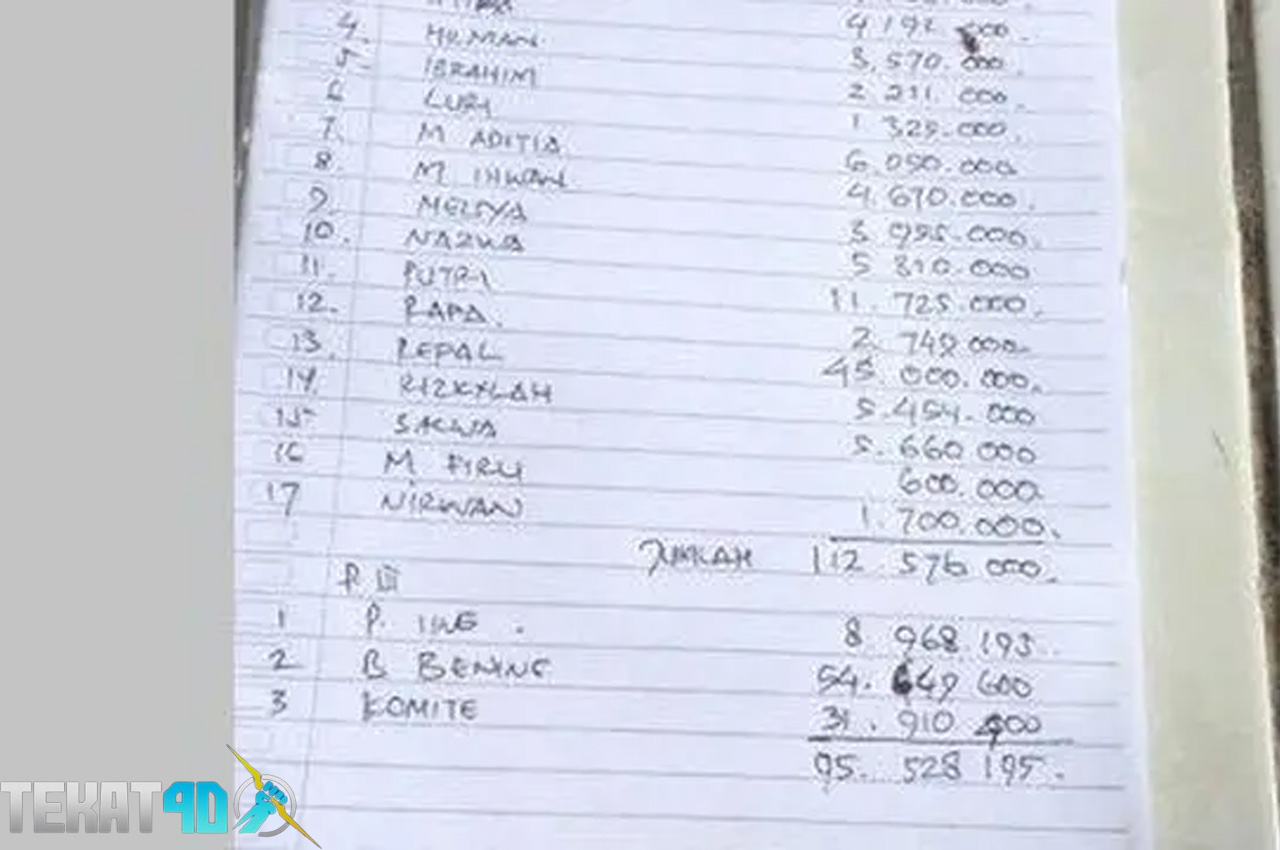 4. HILMAN 4 192 000.
5. IBRAHIM 3.570.000.
6 LURI 2 211.000.
7. M ADITIA 1 325.000.
8. M IHWAN 6.050.000
9. MELIYA 4.670.000.
10. NAZWA 3 955.000.
11. PUTRI 5 310.000
12. RAPA. 11.725.000.
13. REPAL 2.749 000
14. RIZKYLAH 45.000.000.
15 SALWA 5.454.000
16 M. FIRLI 5.660 000
17 NIRWAN 600.000
1.700.000.
JUMLAH 112 576 000.
P. III
1 P. 8 968 193.
2 B BENING 54. 649 600
3 KOMITE 31. 910 400
95. 528 195.
TEKAT4D